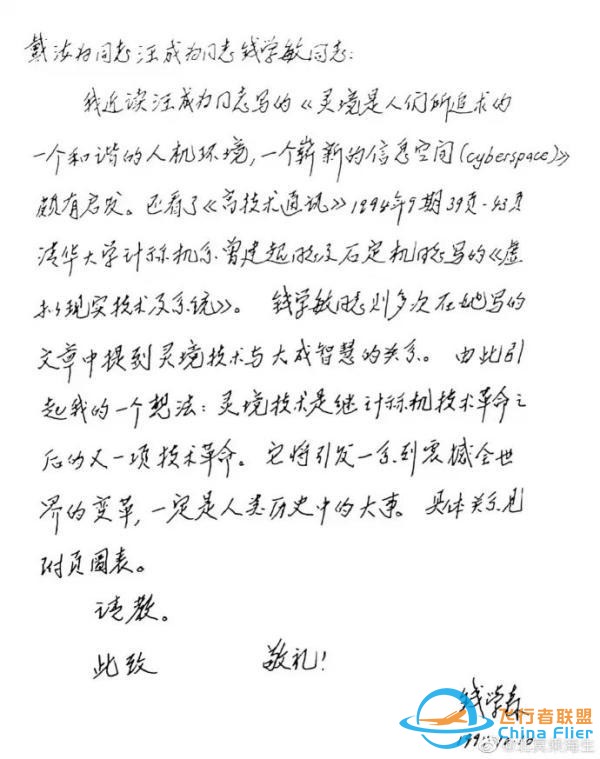 戴汝为同志汪成为同志钱学敏同志：
我近读汪成为同志写的《灵境是人们所追求的
一个和谐的人机环境，一个崭新的信息空间(cyberspace)》
颇有启发。还看了《高技术通讯》1994年9期39页-43页
清华大学计算机系曾建超同志及石定机同志写的《虚
拟现实技术及系统》。钱学敏同志则多次在她写的
文章中提到灵境技术与大成智慧的关系。由此引
起我的一个想法：灵境技术是继计算机技术革命之
后的又一项技术革命。它将引发一系列震撼全世
界的变革，一定是人类历史中的大事。具体关系见
附页圖表。
请教。
此致 敬礼！
钱学森
飞行者联盟
China Flier